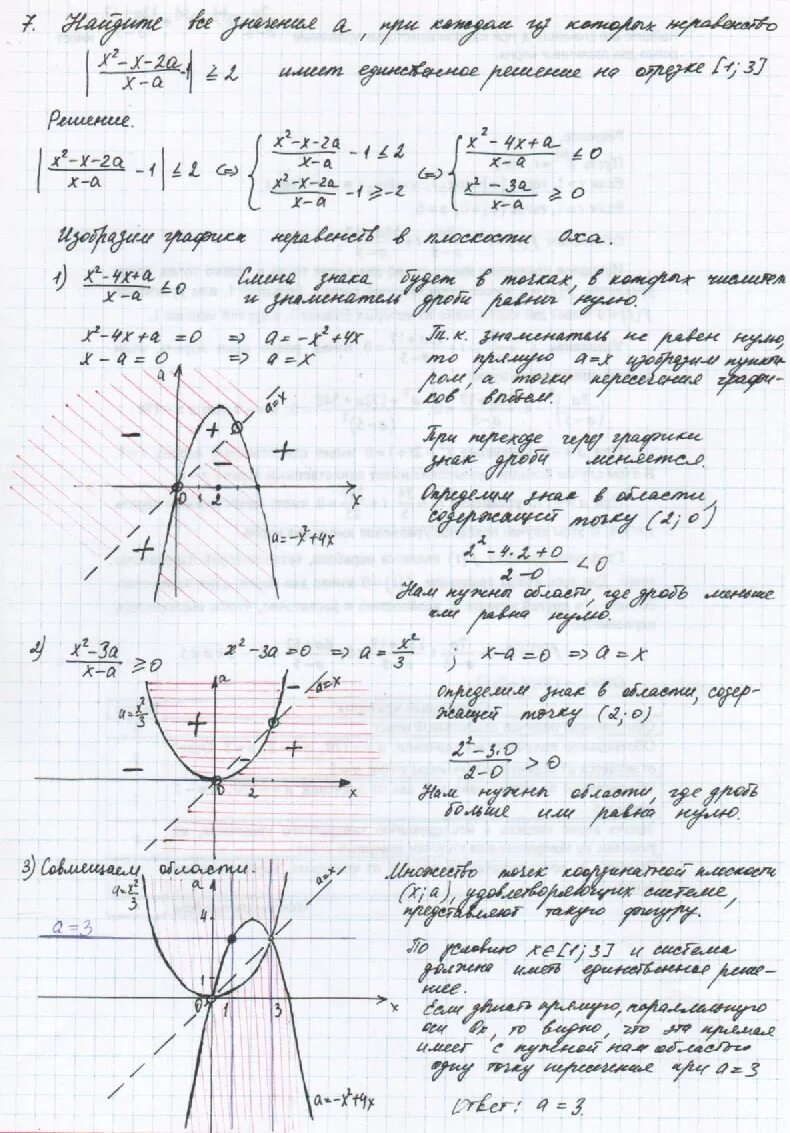 7. Найдите все значения a при каждом из которых неравенство
|x²-x-2a/x-a -1| ≤ 2 имеет единственное решение на отрезке [1; 3]
Решение.
|x²-x-2a/x-a - 1| ≤ 2 ⇔ { x²-x-2a/x-a - 1 ≤ 2 ; x²-x-2a/x-a - 1 ≥ -2 ⇔ { x²-4x+a/x-a ≤ 0 ; x²-3a/x-a ≥ 0
Изобразим графики неравенств в плоскости Oxa.
1) x²-4x+a/x-a ≤ 0 Смена знака будет в точках, в которых числитель
и знаменатель дроби равны нулю.
x²-4x+a = 0 ⇒ a = -x²+4x
x-a = 0 ⇒ a = x
Т.к. знаменатель не равен нулю,
то прямую a=x изобразим пункти-
ром, а точки пересечения графи-
ков выбьем.
a
a=x
- + + - +
0 1 2 x
a=-x²+4x
При переходе через графики
знак дроби меняется.
Определим знак в области,
содержащей точку (2; 0)
2²-4·2+0/2-0 < 0
Нам нужны области, где дробь меньше
или равна нулю.
2) x²-3a/x-a ≥ 0 x²-3a=0 ⇒ a = x²/3 ; x-a=0 ⇒ a = x
a
a=x²/3
a=x
+ - + - -
0 2 x
Определим знак в области, содер-
жащей точку (2; 0)
2²-3·0/2-0 > 0
Нам нужны области, где дробь
больше или равна нулю.
3) Совмещаем области
a=x²/3
a
a=x
4
a=3
1
0 1 3 x
a=-x²+4x
Множество точек координатной плоскости
(x; a), удовлетворяющих системе,
представляют такую фигуру.
По условию x∈[1; 3] и система
должна иметь единственное реше-
ние.
Если двигать прямую, параллельную
оси Ox, то видно, что эта прямая
имеет с нужной нам областью
одну точку пересечения при a=3
Ответ: a=3.